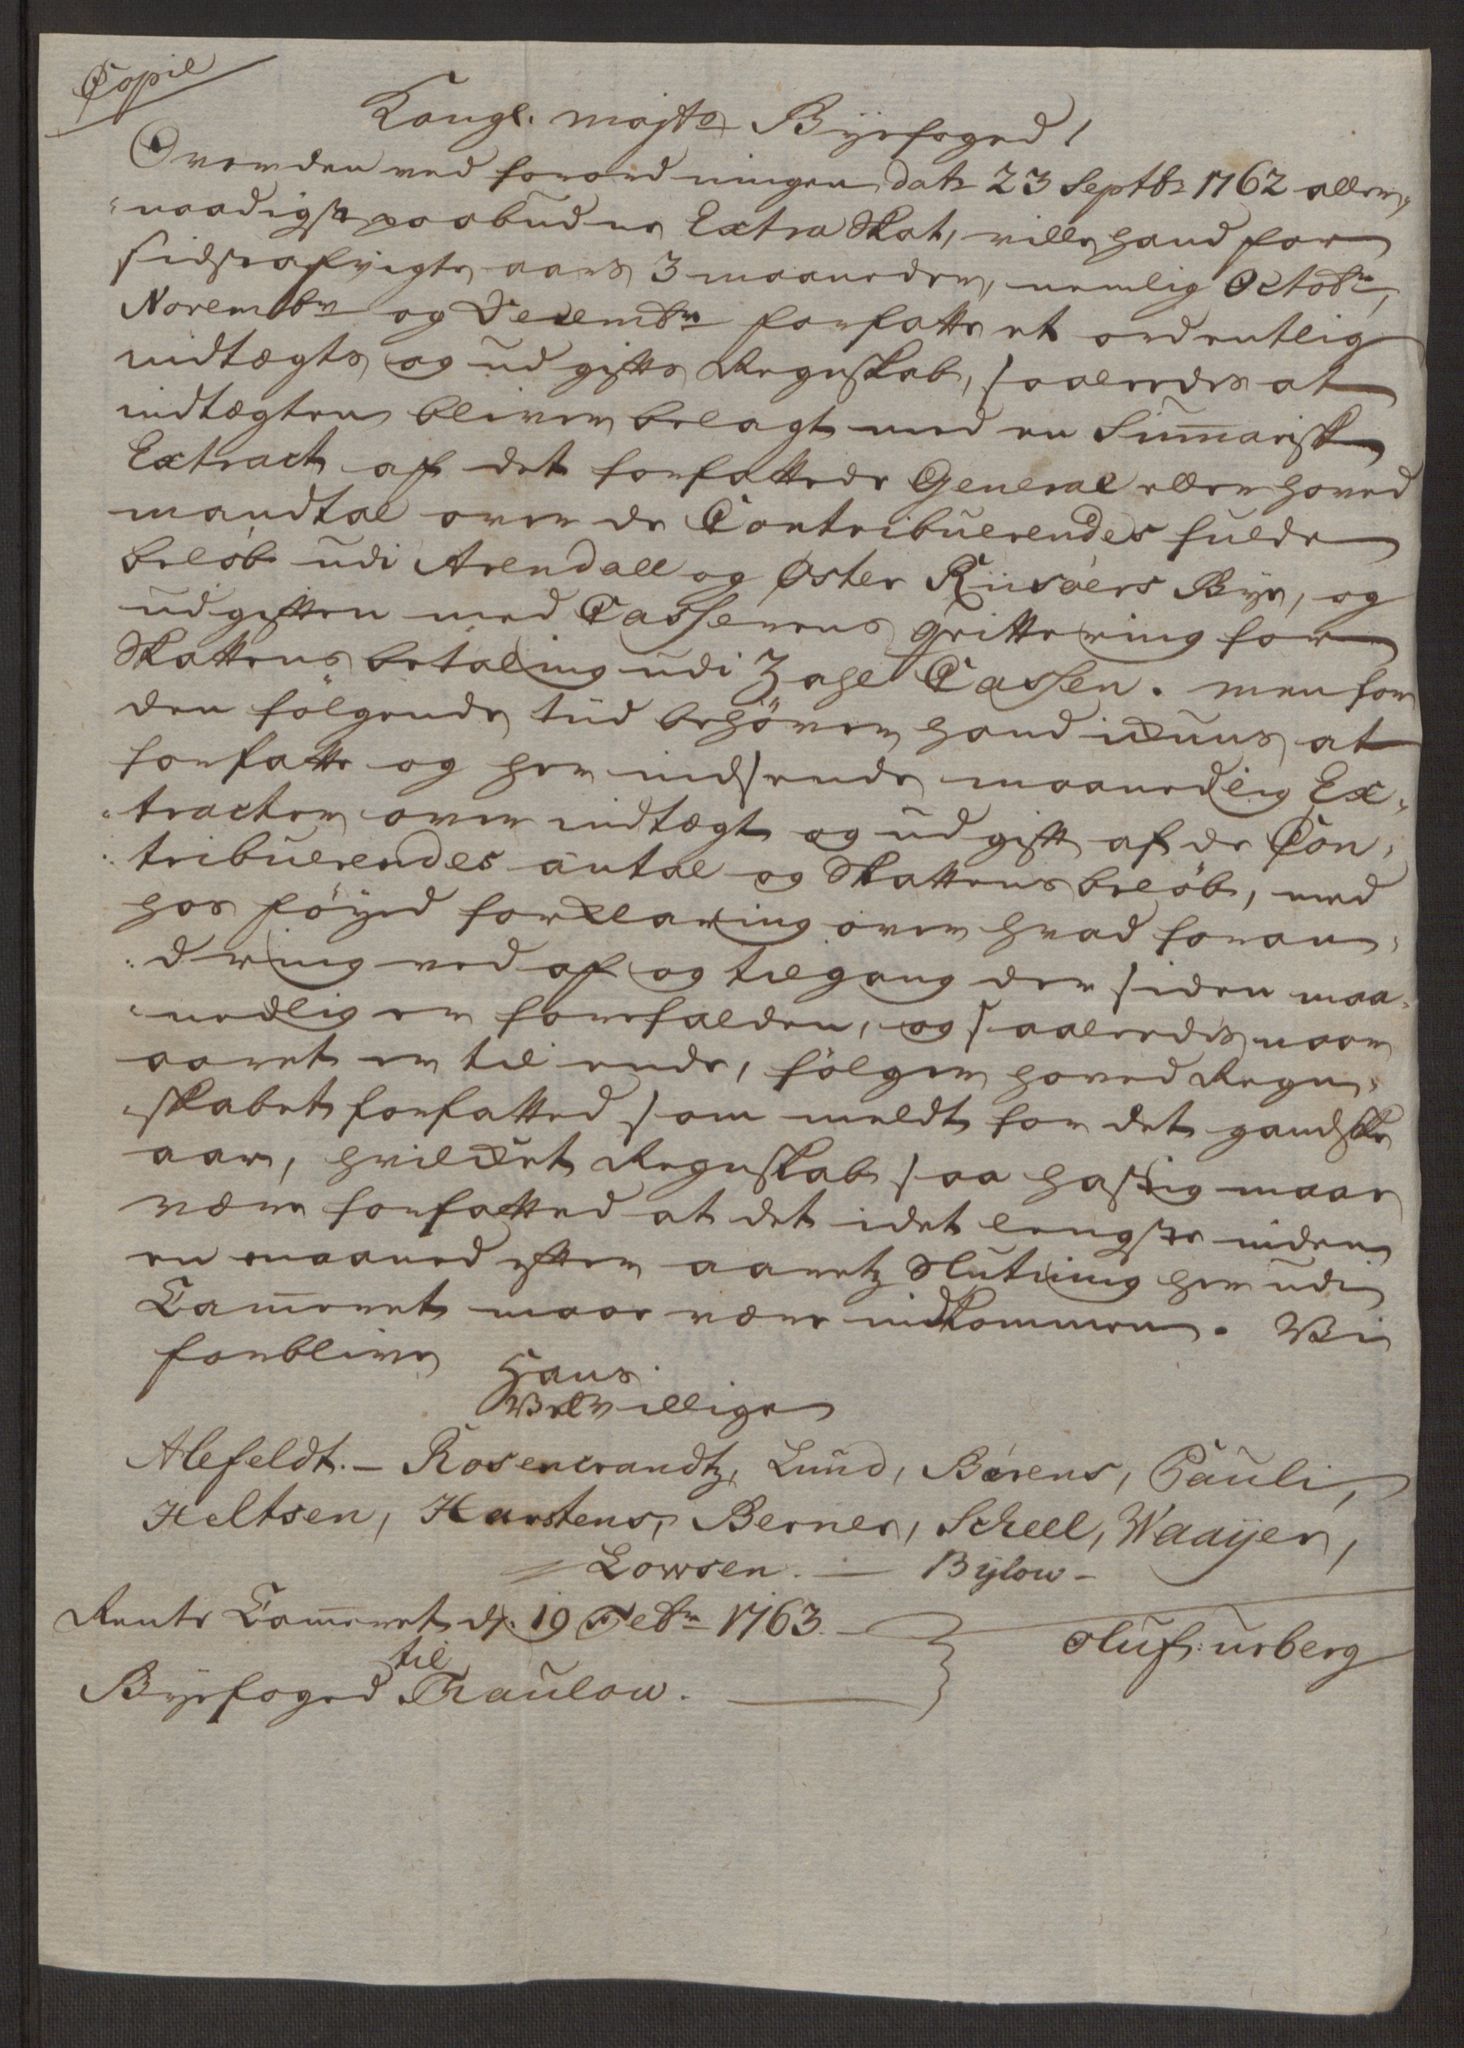 Copie
Kongl. majts Byefoged!
Over den ved forordningen dat 23 Septbr 1762 aller,
naadigst paabudne Extra Skat, ville hand for
sidst afvigte aars 3 maaneder, nemlig Octobr,
Novembr og Decembr forfatte et ordentlig
indtægts og udgifts Regnskab, saaledes at
indtægten bliver belagt med en Sum̄arisk
Extract af det forfattede General eller hoved
mandtal over de Contribuerendes fulde
beløb udi Arendall og Øster Riisøers Bye, og
udgiften med Casserens qvittering for
Skattens betaling udi Zahl Cassen. men for
den følgende tiid behøver hand ickuns at
forfatte og her indsende maanedlig Ex,
tracter over indtægt og udgift af de Con,
tribuerendes antal og Skattens beløb, med
hos føyed forklaring over hvad foran,
dring ved af og tilgang der siden maa,
nedlig er forefalden, og saaledes naar
aaret er til ende, følger hoved Regn,
skabet forfatted som meldt for det gandske
aar, hvilcket Regnskab saa hastig maae
være forfatted at det i det lengste inden
en maaned efter aaretz Slutning her udi
Cam̄eret maae være indkommen. Vi
forblive
Hans
Velvillige
Ahlefeldt. - Rosencrandtz, Lund, Bærens, Pauli,
Heltsen, Karstens, Berner, Scheel, Waayer,
Lowsen. - Bylow -
Rente Cam̄eret d. 19 Febr 1763
til
Byefoged Thaulow.
Oluf: urberg